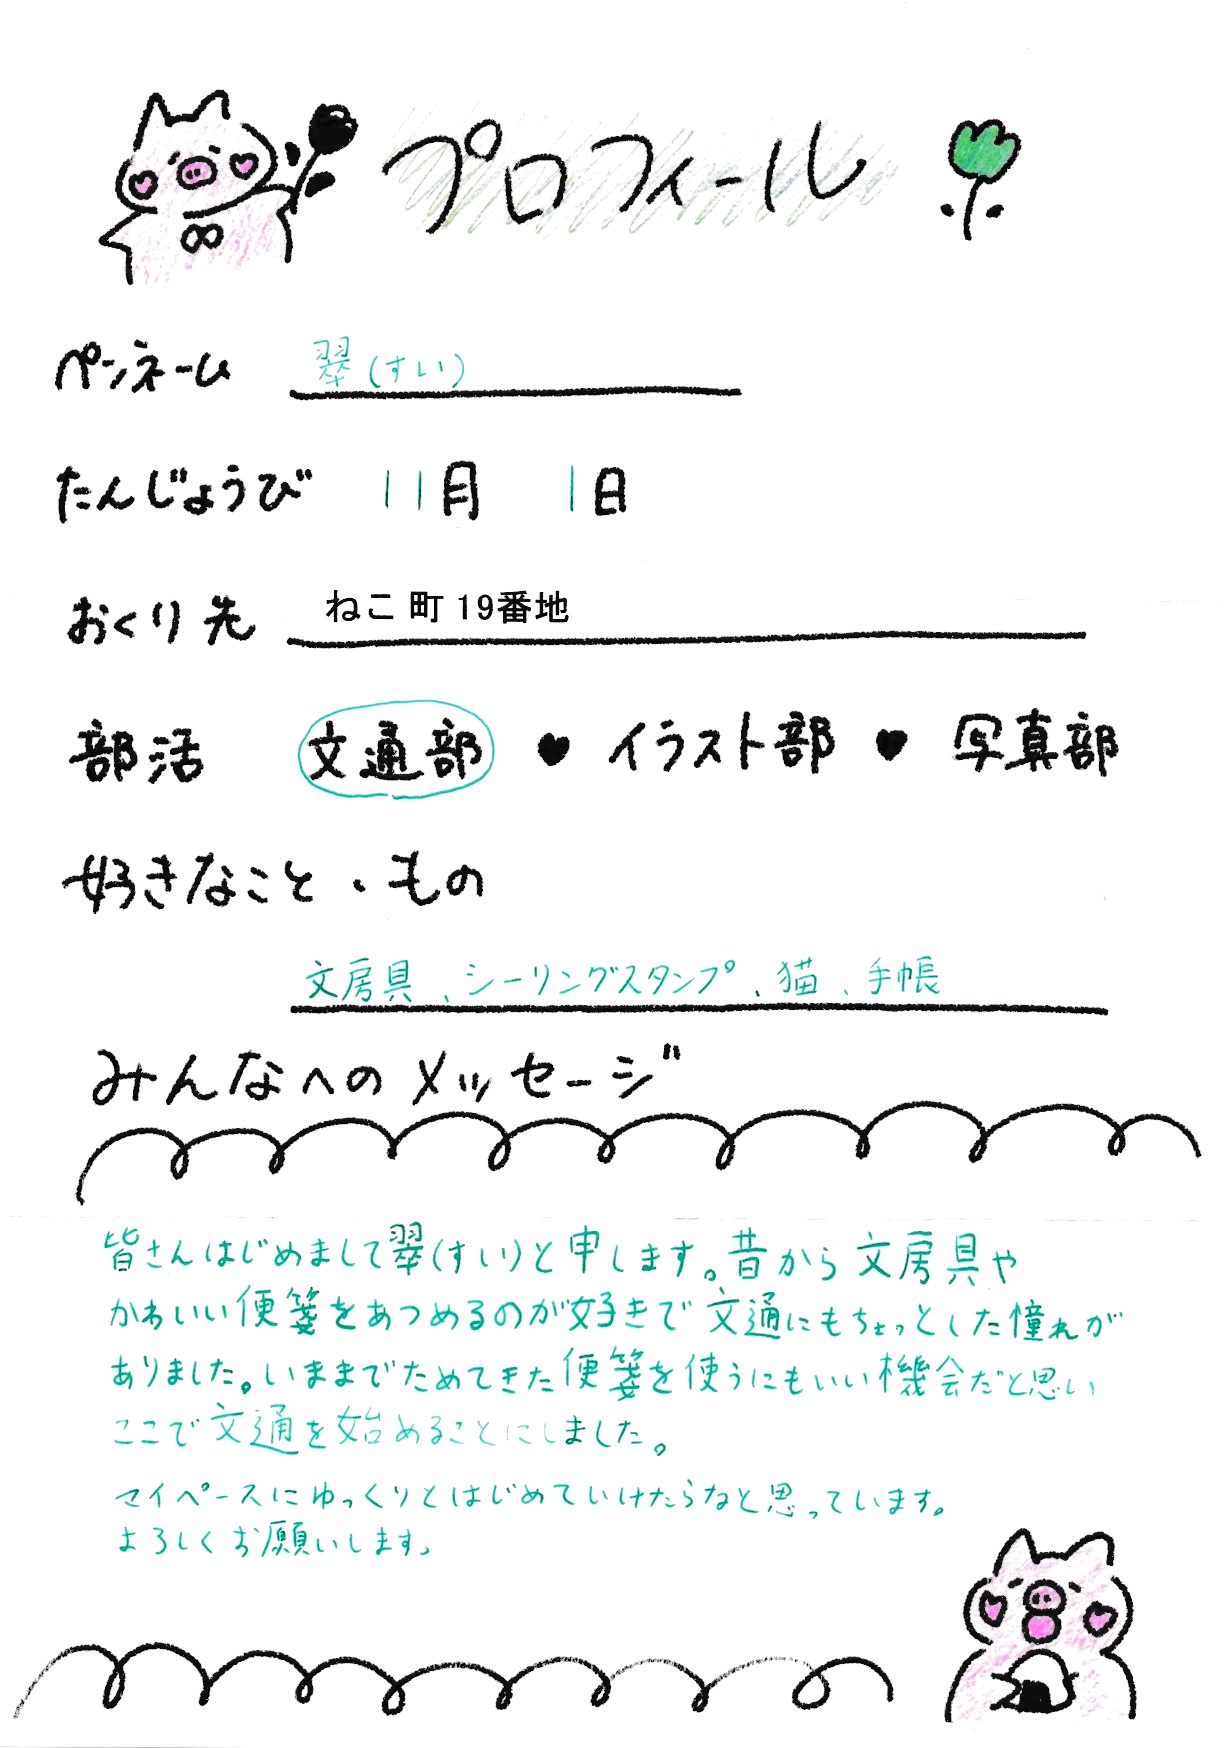 プロフィール
ペンネーム 翠(すい)
たんじょうび 11月 1日
おくり先 ねこ町19番地
部活 文通部 ♥ イラスト部 ♥ 写真部
好きなこと、もの
文房具、シーリングスタンプ、猫、手帳
みんなへのメッセージ
皆さんはじめまして翠(すい)と申します。昔から文房具や
かわいい便箋をあつめるのが好きで文通にもちょっとした憧れが
ありました。いままでためてきた便箋を使うにもいい機会だと思い
ここで文通を始めることにしました。
マイペースにゆっくりとはじめていけたらなと思っています。
よろしくお願いします。